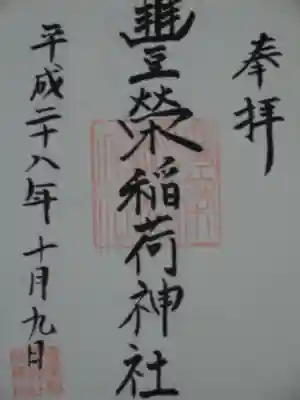 奉拝
豊榮稲荷神社
平成二十八年十月九日